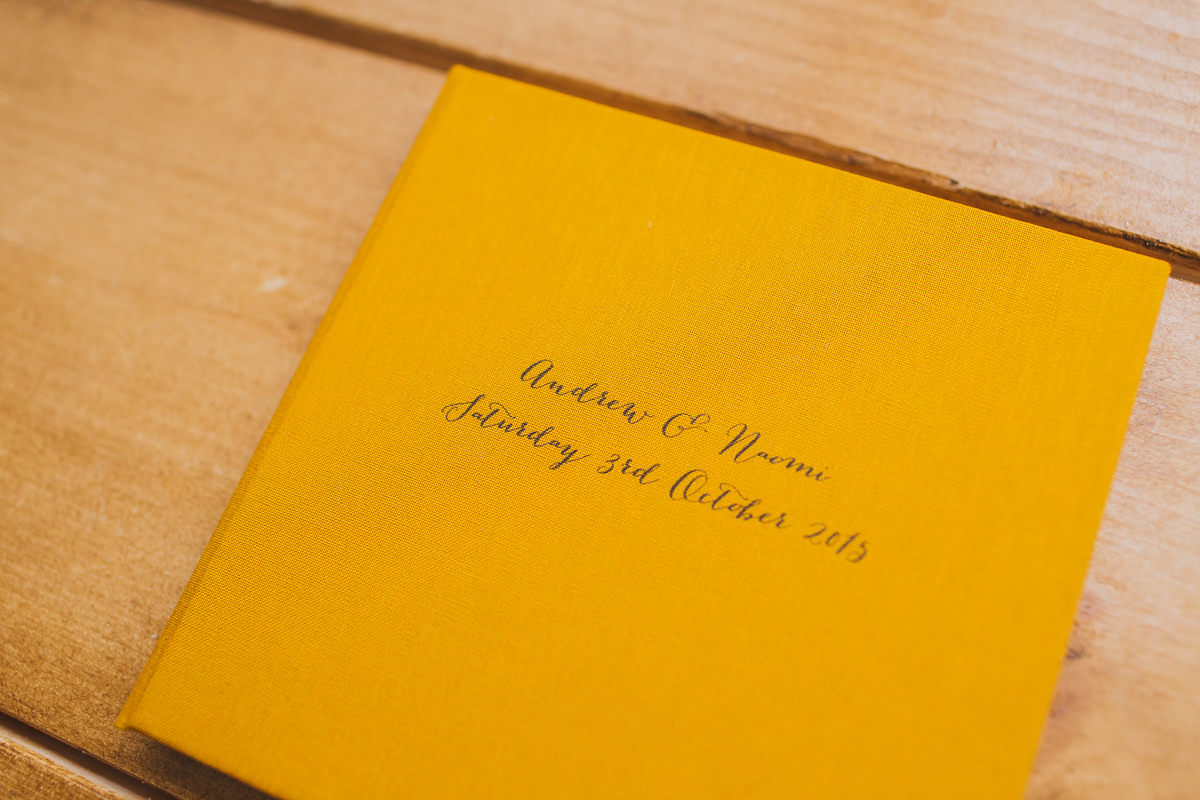 Andrew & Naomi
Saturday 3rd October 2015